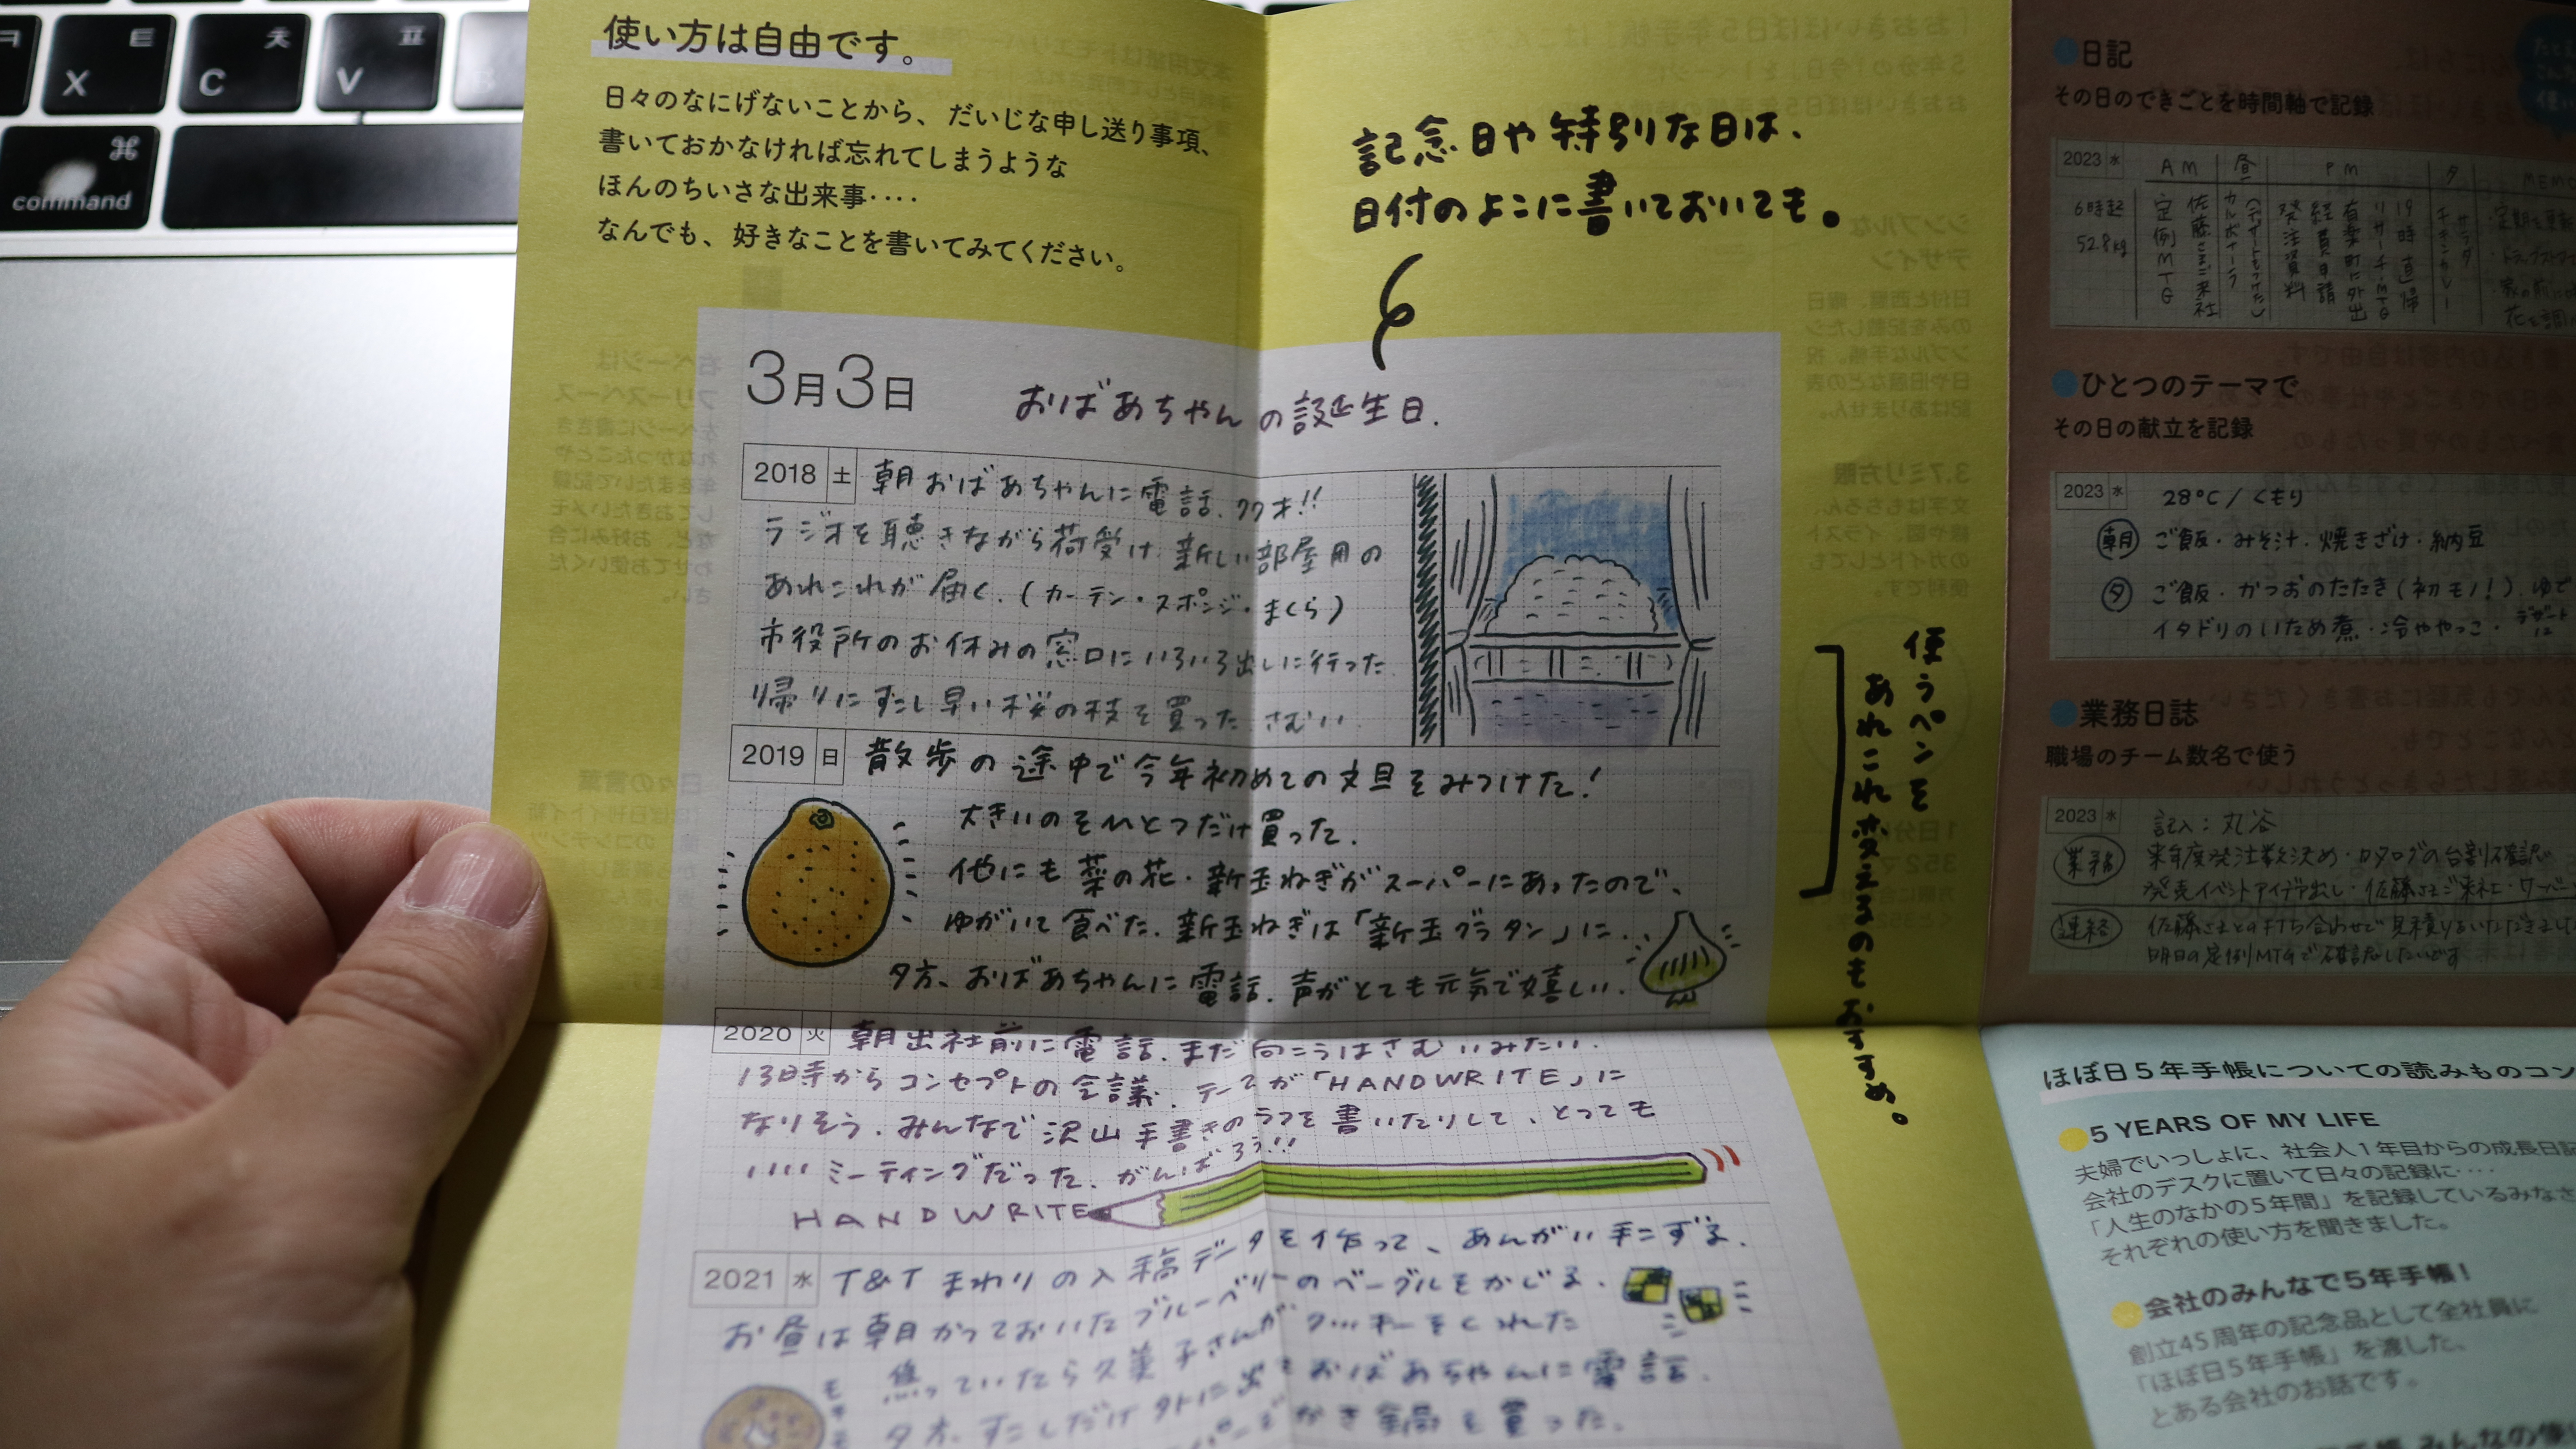 ㅋ
ㅌ
X
ㅊ
C
ㅍ
V
⌘
command
使い方は自由です。
日々のなにげないことから、だいじな申し送り事項、
書いておかなければ忘れてしまうような
ほんのちいさな出来事‥‥
なんでも、好きなことを書いてみてください。
記念日や特別な日は、
日付のよこに書いておいても。
3月3日 おばあちゃんの誕生日.
2018 土 朝おばあちゃんに電話.
ラジオを聴きながら荷受け.新しい部屋用の
あれこれが届く.(カーテン・スポンジ・まくら)
市役所のお休みの窓口にいろいろ出しに行った
帰りにすこし早い桜の枝を買った.さむい
2019 日 散歩の途中で今年初めての文旦をみつけた!
大きいのをひとつだけ買った.
他にも菜の花・新玉ねぎがスーパーにあったので、
ゆがいて食べた.新玉ねぎは「新玉グラタン」に..
夕方、おばあちゃんに電話.声がとても元気で嬉しい.
2020 火 朝出社前に電話.まだ向こうはさむいみたい.
13時からコンセプトの会議.テーマが「HANDWRITE」に
なりそう.みんなで沢山手書きのラフを書いたりして、とっても
いいミーティングだった.がんばろう!!
HANDWRITE
2021 水 T&Tまわりの入稿データを作って、あんがい手こずる.
お昼は朝かっておいたブルーベリーのベーグルをかじる.
焦っていたら久美子さんがクッキーをくれた
夕方、すこしだけ外に出ておばあちゃんに電話.
を買った.
使うペンを
あれこれ変えるのもおすすめ。
日記
その日のできごとを時間軸で記録
2023 水 AM 昼 PM 夕 MEMO
6時起
52.8kg
定例MTG
佐藤さまご来社
カルボナーラ
発注資料
経費申請
有楽町に外出
リサーチMTG
19時直帰
チキンカレー
サラダ
ひとつのテーマで
その日の献立を記録
2023 水 28℃/くもり
朝 ご飯・みそ汁・焼きざけ・納豆
夕 ご飯・かつおのたたき(初モノ!).ゆで
イタドリのいため煮・冷ややっこ・デザートに
業務日誌
職場のチーム数名で使う
2023 水 記入:丸谷
業務 来年度発注数を決め・カタログの台割確認
発売イベントアイデア出し・佐藤さまご来社・
連絡 佐藤さまとの打ち合わせで見積りをいただきました
明日の定例MTGで確認したいです
ほぼ日5年手帳についての読みものコン
5 YEARS OF MY LIFE
夫婦でいっしょに、社会人1年目からの成長日記
会社のデスクに置いて日々の記録に‥‥
「人生のなかの5年間」を記録しているみなさ
それぞれの使い方を聞きました。
会社のみんなで5年手帳!
創立45周年の記念品として全社員に
「ほぼ日5年手帳」を渡した、
とある会社のお話です。